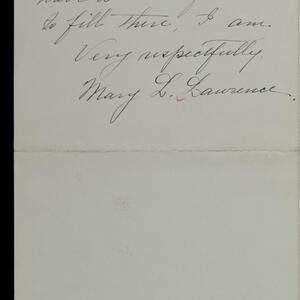 to fill there, I am.
Very respectfully
Mary L. Lawrence.